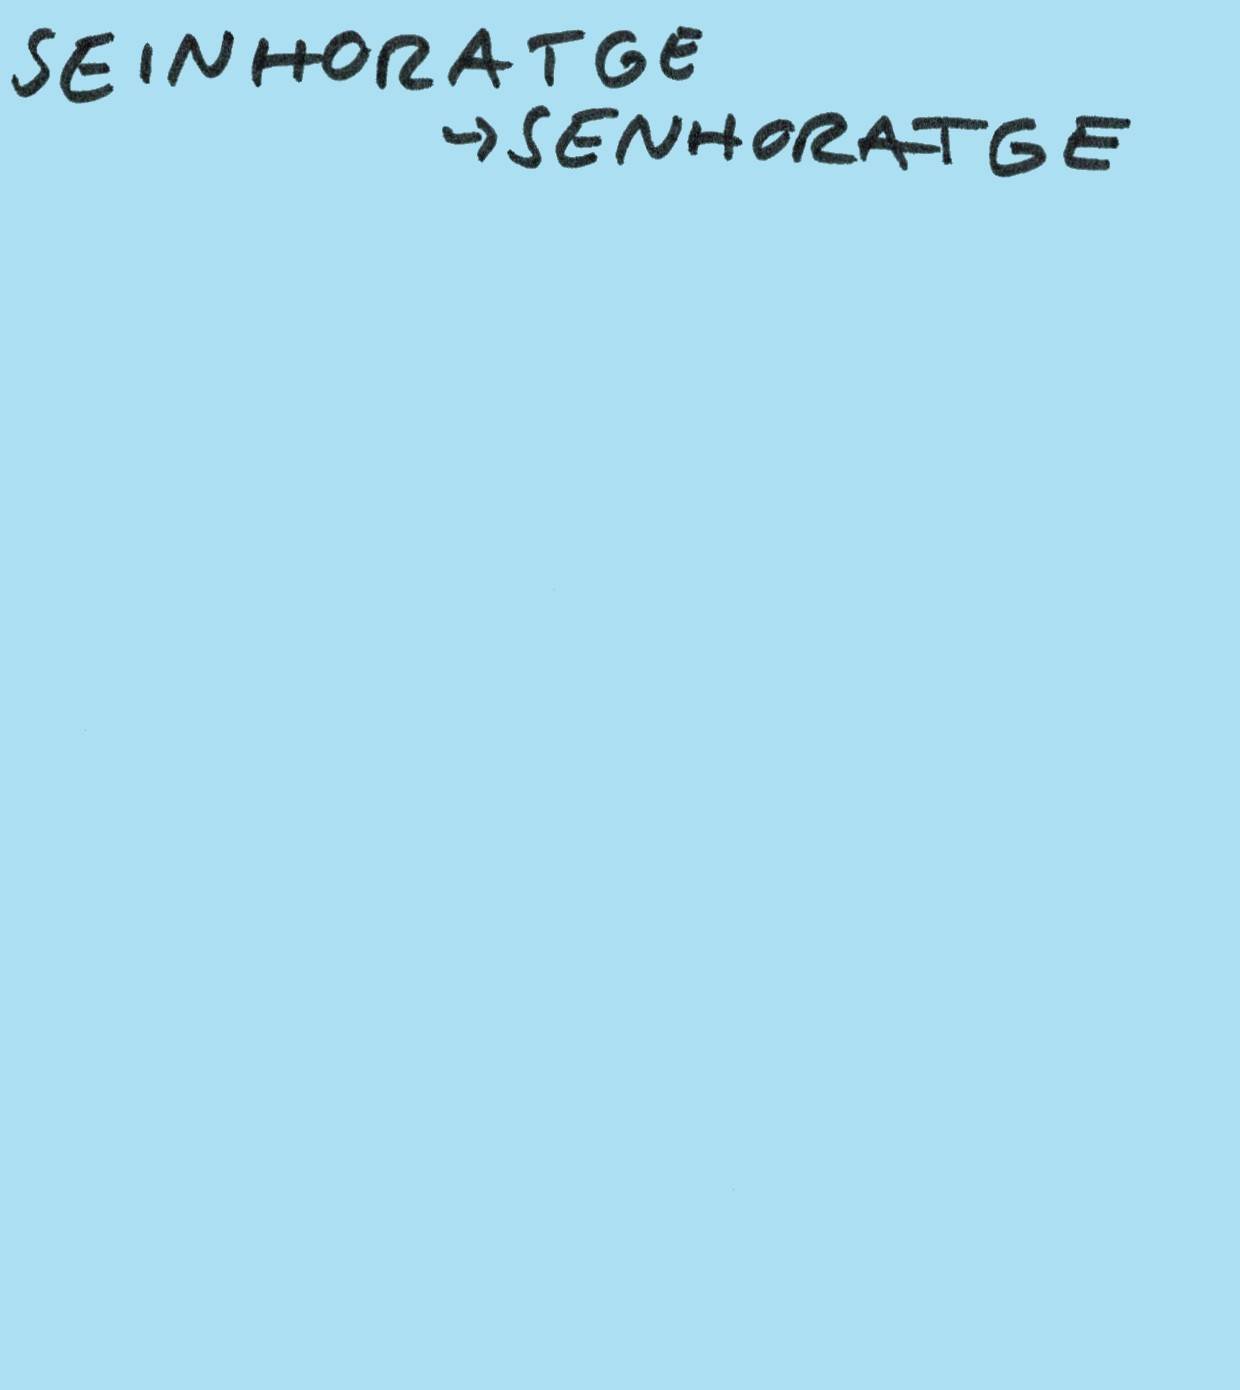 SEINHORATGE
→SENHORATGE